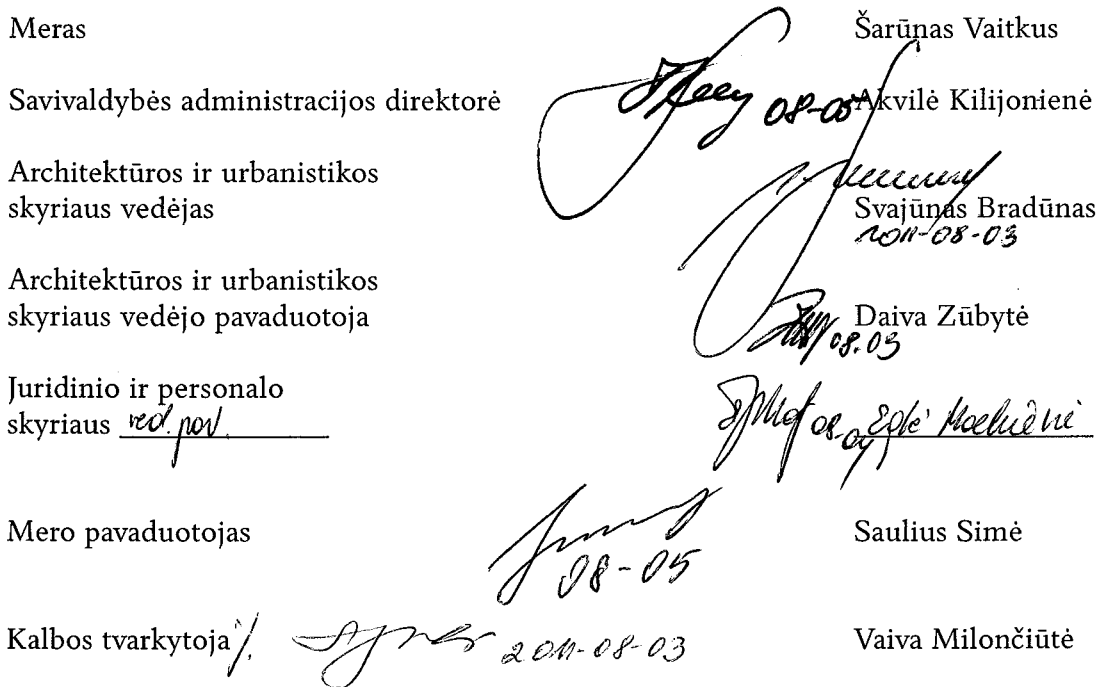 Meras Šarūnas Vaitkus
Savivaldybės administracijos direktorė 08-05 Akvilė Kilijonienė
Architektūros ir urbanistikos
skyriaus vedėjas Svajūnas Bradūnas
2011-08-03
Architektūros ir urbanistikos
skyriaus vedėjo pavaduotoja Daiva Zūbytė
08.03
Juridinio ir personalo
skyriaus ved. pav. 08-04 Eglė
Mero pavaduotojas Saulius Simė
08-05
Kalbos tvarkytoja 2011-08-03 Vaiva Milončiūtė